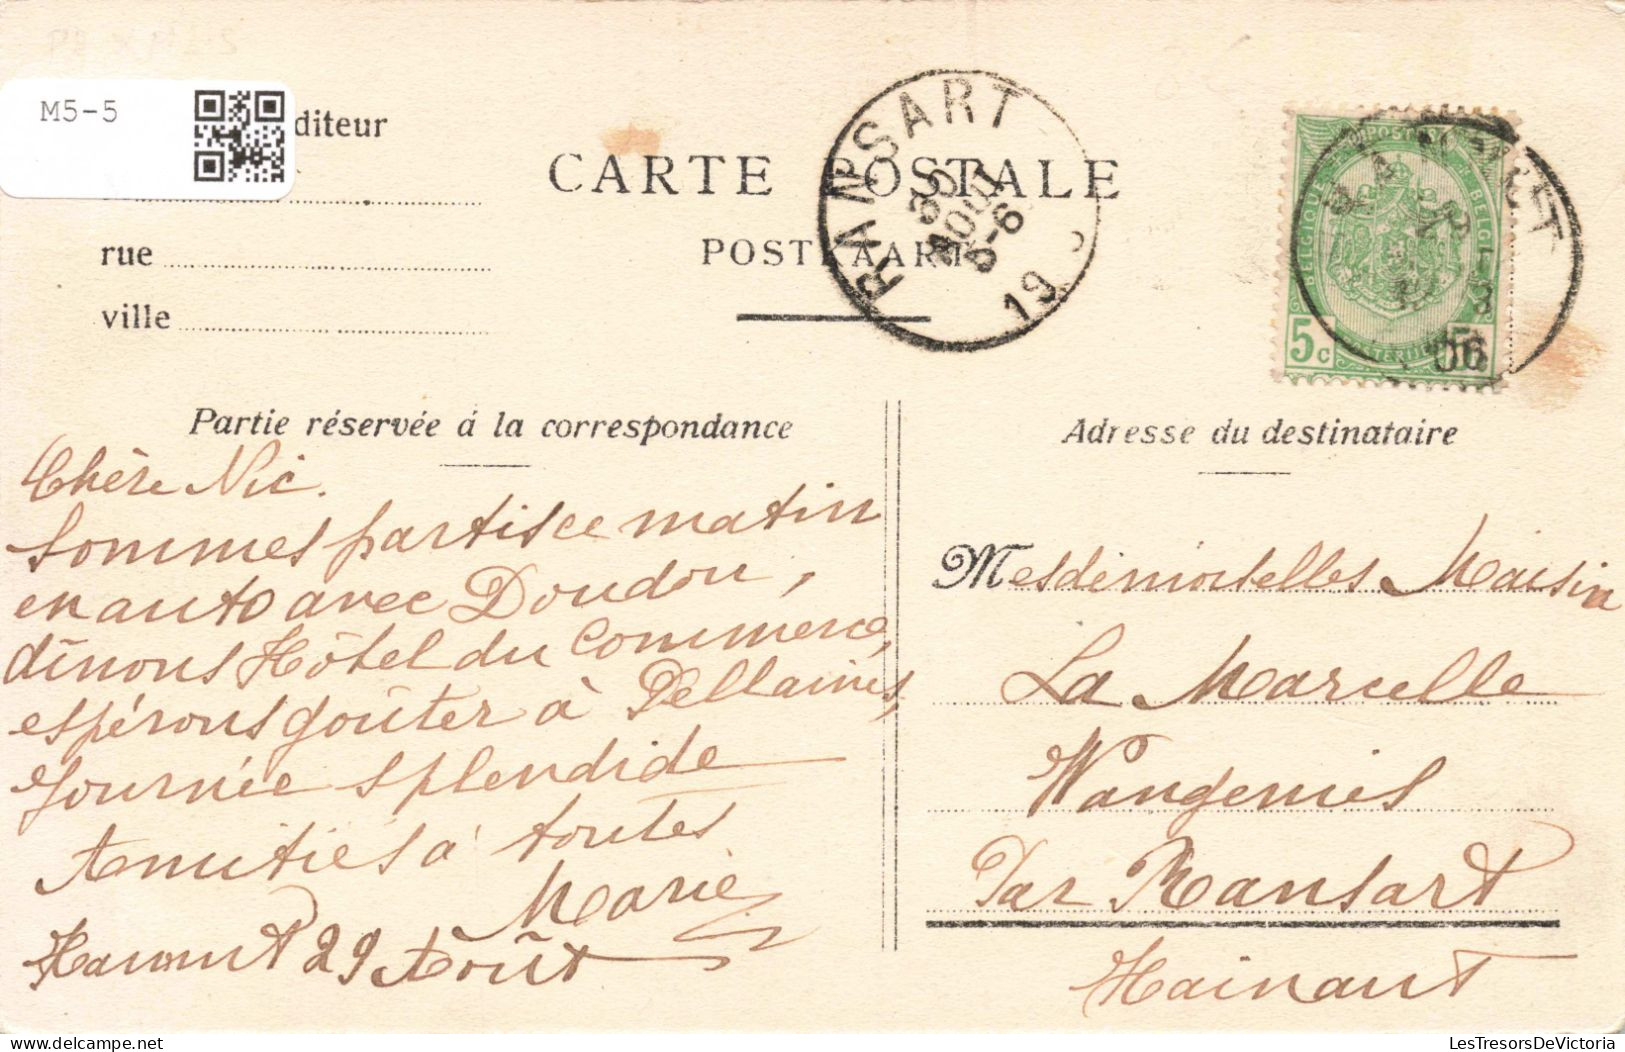 M5-5
diteur
rue
ville
CARTE POSTALE
POSTKAART
RANSART
30
AOUT
5-6
19
POSTES
BELGIQUE
BELGIE
5c
5
06
Partie réservée á la correspondance
Adresse du destinataire
Chère Nic.
Sommes partis ce matin
en auto avec Doudou,
dînons Hôtel du Commerce,
espérons goûter à
Journée splendide
Amitiés à toutes
Marie
29 Août
Mesdemoiselles Maisin
La Marcelle
Wangenies
Par Ransart
Hainaut
LesTresorsDeVictoria